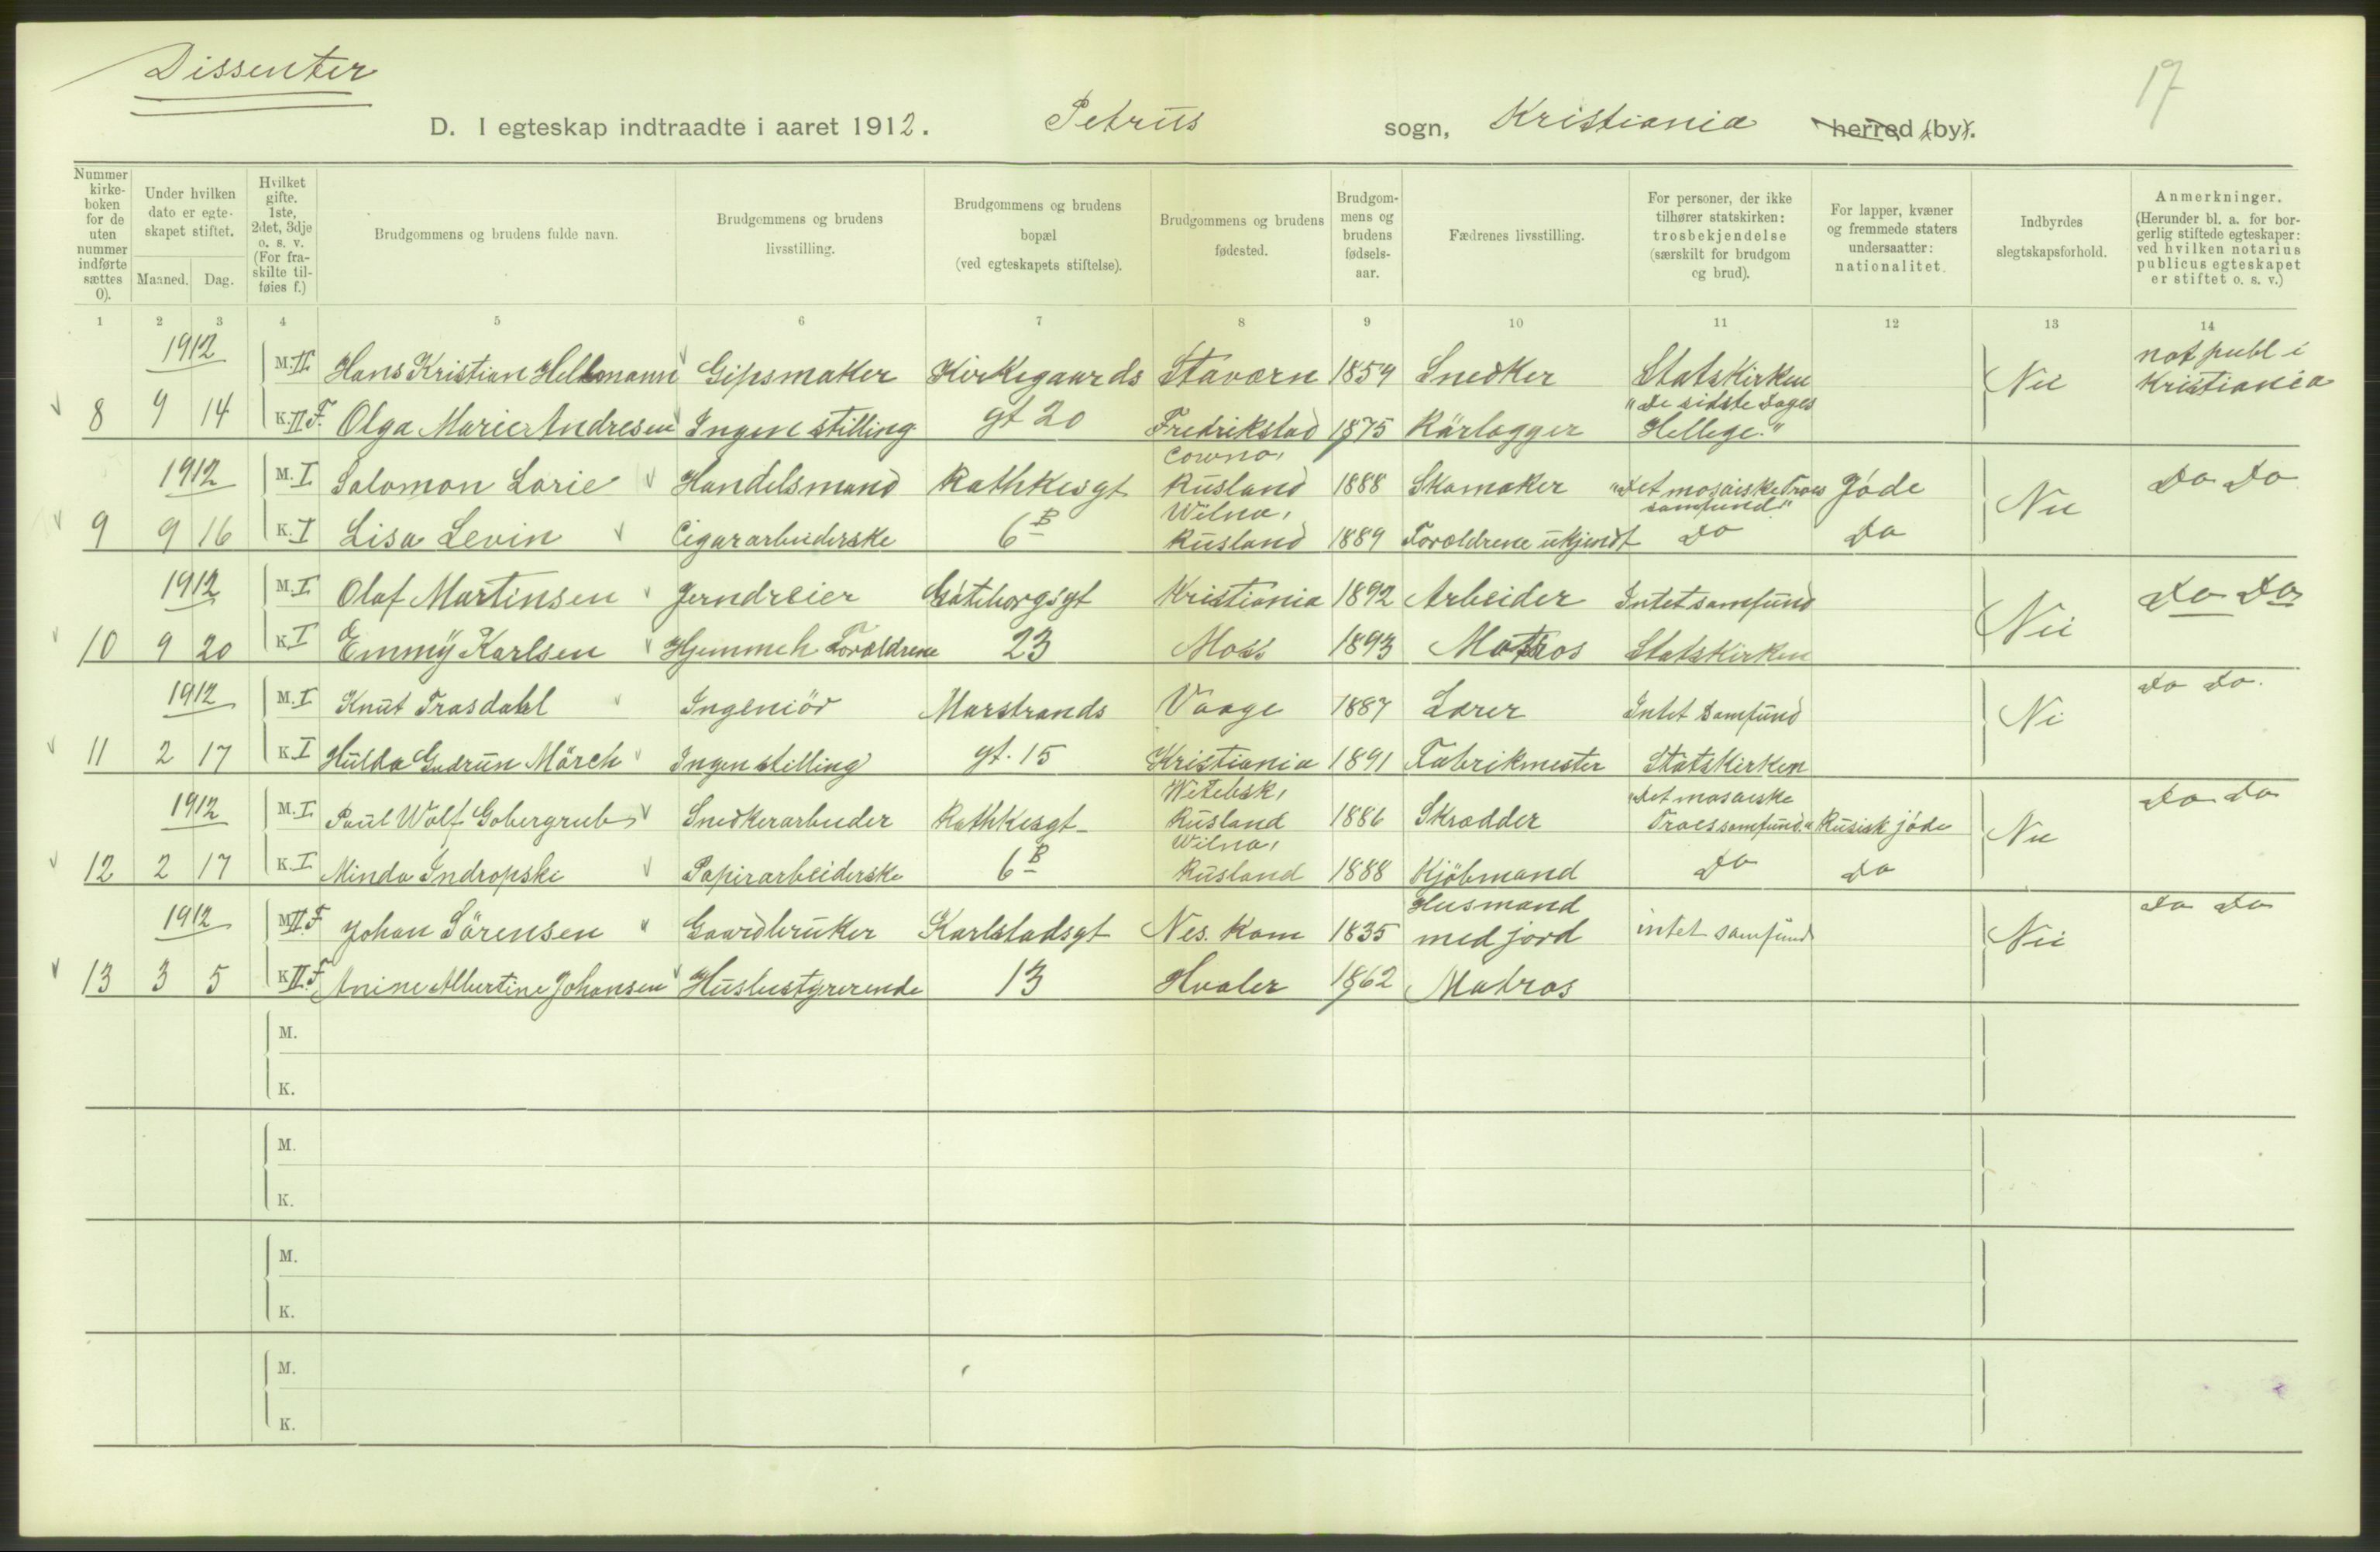 Dissenter
17
D. I egteskap indtraadte i aaret 1912. Petrus sogn, Kristiania herred (by).
Nummer kirke-boken for de uten nummer indførte sættes 0).
Under hvilken dato er egte-skapet stiftet.
Maaned. Dag.
Hvilket gifte. 1ste, 2det, 3dje o. s. v. (For fra-skilte til-føies f.)
Brudgommens og brudens fulde navn.
Brudgommens og brudens livsstilling.
Brudgommens og brudens bopæl (ved egteskapets stiftelse).
Brudgommens og brudens fødested.
Brudgom-mens og brudens fødsels-aar.
Fædrenes livsstilling.
For personer, der ikke tilhører statskirken: trosbekjendelse (særskilt for brudgom og brud).
For lapper, kvæner og fremmede staters undersaatter: nationalitet.
Indbyrdes slegtskapsforhold.
Anmerkninger. (Herunder bl. a. for bor-gerlig stiftede egteskaper: ved hvilken notarius publicus egteskapet er stiftet o. s. v.)
1 2 3 4 5 6 7 8 9 10 11 12 13 14
1912 M. II Hans Kristian Gipsmaker Kirkegaards Stavern 1859 Snedker Statskirken Nei not publ i Kristiania
8 9 14 K. II F. Olga Marie Andresen Ingen stilling gt 20 Fredrikstad 1875 Rörlægger "De sidste Dages Hellege."
1912 M. I Salomon Lorie Handelsmand Rathkesgt Cowno, Rusland 1888 Skomaker "Det mosaiske Troes samfund" Jøde Nei Do Do
9 9 16 K. I Lisa Levin Cigararbeiderske 6 B Wilna, Rusland 1889 Forældrene ukjendt Do Do
1912 M. I Olaf Martinsen Jerndreier Gøteborgsgt Kristiania 1892 Arbeider Intet samfund Nei Do Do
10 9 20 K. I Emmy Karlsen Hjemme h Forældrene 23 Moss 1893 Matros Statskirken
1912 M. I Knut Trasdahl Ingeniör Marstrands Vaage 1887 Lærer Intet Samfund Nei Do Do.
11 2 17 K. I Hulda Gudrun Mörch Ingen stilling gt. 15 Kristiania 1891 Fabrikmester Statskirken
1912 M. I Paul Wolf Gobergrub Snedkerarbeider Rathkesgt Witebsk, Rusland 1886 Skrædder "Det mosaiske Troessamfund." Rusisk jøde Nei Do Do
12 2 17 K. I Minda Indropski Papirarbeiderske 6 B Wilna, Rusland 1888 Kjöbmand Do Do
1912 M. II. F Johan Sörensen Gaardbruker Karlstadsgt Nes. Rom 1835 Husmand med jord intet samfund Nei Do Do
13 3 5 K. II. F Anine Albertine Johansen Husbestyrerende 13 Hvaler 1862 Matros
M.
K.
M.
K.
M.
K.
M.
K.